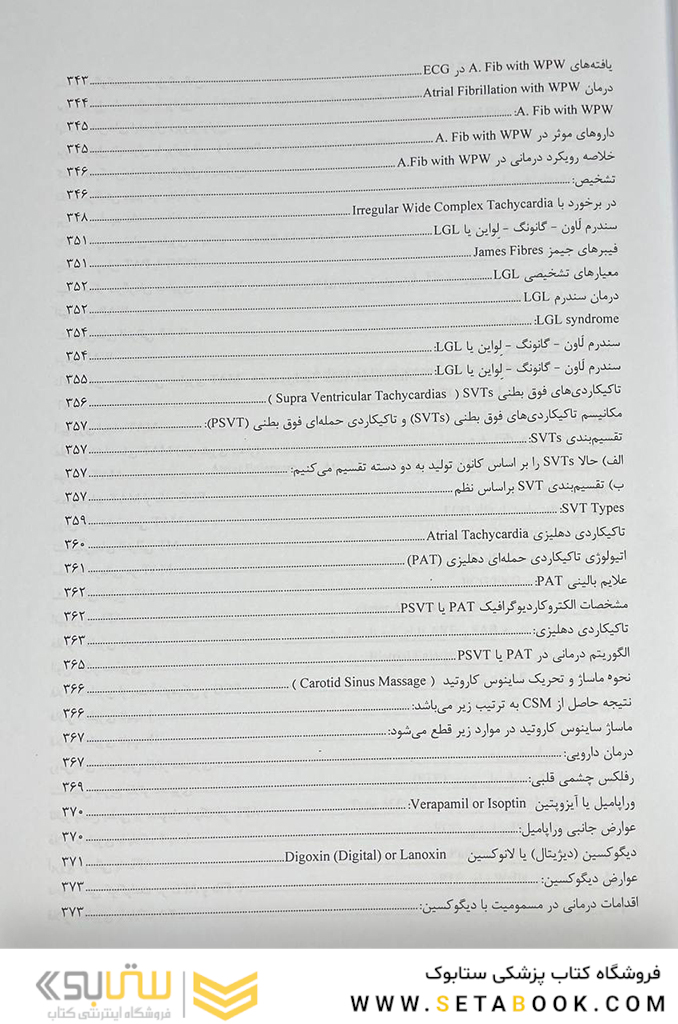 یافته‌های A. Fib with WPW در ECG ۳۴۳
درمان Atrial Fibrillation with WPW ۳۴۴
A. Fib with WPW: ۳۴۵
داروهای موثر در A. Fib with WPW ۳۴۵
خلاصه رویکرد درمانی در A.Fib with WPW ۳۴۶
تشخیص: ۳۴۶
در برخورد با Irregular Wide Complex Tachycardia ۳۴۸
سندرم لَاون - گانونگ - لِواین یا LGL ۳۵۱
فیبرهای جیمز James Fibres ۳۵۱
معیارهای تشخیصی LGL ۳۵۲
درمان سندرم LGL ۳۵۲
LGL syndrome: ۳۵۴
سندرم لَاون - گانونگ - لِواین یا LGL: ۳۵۴
سندرم لَاون - گانونگ - لِواین یا LGL: ۳۵۵
تاکیکاردی‌های فوق بطنی SVTs ( Supra Ventricular Tachycardias ) ۳۵۶
مکانیسم تاکیکاردی‌های فوق بطنی (SVTs) و تاکیکاردی حمله‌ای فوق بطنی (PSVT): ۳۵۷
تقسیم‌بندی SVTs: ۳۵۷
الف) حالا SVTs را بر اساس کانون تولید به دو دسته تقسیم می‌کنیم: ۳۵۷
ب) تقسیم‌بندی SVT براساس نظم ۳۵۷
SVT Types: ۳۵۹
تاکیکاردی دهلیزی Atrial Tachycardia ۳۶۰
اتیولوژی تاکیکاردی حمله‌ای دهلیزی (PAT) ۳۶۱
علایم بالینی PAT: ۳۶۲
مشخصات الکتروکاردیوگرافیک PAT یا PSVT ۳۶۲
تاکیکاردی دهلیزی: ۳۶۳
الگوریتم درمانی در PAT یا PSVT ۳۶۵
نحوه ماساژ و تحریک ساینوس کاروتید ( Carotid Sinus Massage ) ۳۶۶
نتیجه حاصل از CSM به ترتیب زیر می‌باشد: ۳۶۶
ماساژ ساینوس کاروتید در موارد زیر قطع می‌شود: ۳۶۷
درمان دارویی: ۳۶۷
رفلکس چشمی قلبی: ۳۶۹
وراپامیل یا آیزوپتین Verapamil or Isoptin: ۳۷۰
عوارض جانبی وراپامیل: ۳۷۰
دیگوکسین (دیژیتال) یا لانوکسین Digoxin (Digital) or Lanoxin ۳۷۱
عوارض دیگوکسین: ۳۷۳
اقدامات درمانی در مسمومیت با دیگوکسین: ۳۷۳
فروشگاه کتاب پزشکی ستابوک
WWW.SETABOOK.COM
ستابوک
فروشگاه اینترنتی کتاب